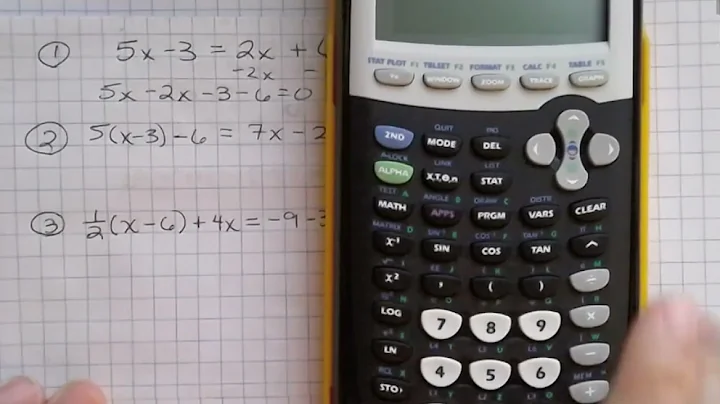 ① 5x-3 = 2x +
-2x -
5x-2x-3-6=0
② 5(x-3)-6 = 7x-2
③ 1/2(x-6)+4x=-9-3
STAT PLOT F1 TBLSET F2 FORMAT F3 CALC F4 TABLE F5
Y= WINDOW ZOOM TRACE GRAPH
QUIT INS
2ND MODE DEL
A-LOCK LINK LIST
ALPHA X,T,Θ,n STAT
TEST A ANGLE B DRAW C DISTR
MATH APPS PRGM VARS CLEAR
MATRIX D SIN⁻¹ E COS⁻¹ F TAN⁻¹ G π H
x⁻¹ SIN COS TAN ^
x² , ( ) ÷
LOG 7 8 9 ×
LN 4 5 6 −
RCL X MEM
STO +